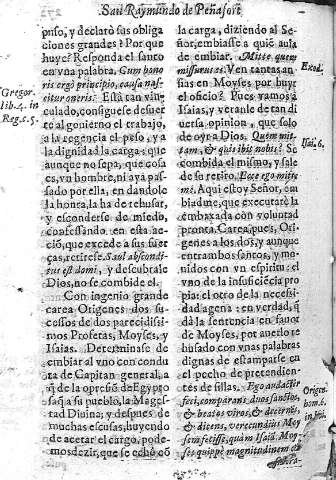 San Raymundo de Peñafort
peso, y declaró sus obliga
ciones grandes? Por que
huye? Responda el santo
en vna palabra. Cum bono
ris ergo principio, causa nas-
citur oneris. Està tan vin-
culado, consiguese desuer
te al gouierno el trabajo,
a la regencia el peso, y a
la dignidad la carga: que
aunque no sepa, que cosa
es, vn hombre, ni aya pas-
sado por ella, en dandole
la honra, la ha de rehusar,
y esconderse de miedo,
confessando en esta ac-
ciõ, que excede a sus fuer
ças, retirese. Saul abscondi
tus est domi, y descubrale
Dios, no se combide el.
Con ingenio grande
carea Origenes dos su-
cessos de dos parecidissi
mos Profetas, Moyses, y
Isaias. Determinase de
embiar al vno en conduc
ta de Capitan general, a
q̃ de la opresiõ de Egypto
saq̃ a su pueblo, la Mages
tad Diuina; y despues de
muchas escusas, huyendo
de acetar el cargo, pode-
mos dezir, que se echò cõ
Gregor.
lib. 4. in
Reg. c. 5
la carga, diziendo al Se-
ñor, embiasse a quiẽ auia
de embiar. Mitte quem
missurus es. Ven tantas an-
sias en Moyses por huyr
el oficio? Pues vamos a
Isaias, y verànle de tan di
uersa opinion, que solo
de oyr a Dios. Quem mit-
tam, & quis ibit nobis? Se
combida el mismo, y sale
de su retiro. Ecce ego mitte
me. Aqui estoy Señor, em
biadme, que executarè la
embaxada con voluntad
pronta. Carea pues, Ori-
genes a los dos, y aunque
entrambos santos, y mo-
uidos con vn espiritu: el
vno de la insuficiẽcia pro
pia: el otro de la necessi-
dad agena: en verdad, q̃
dà la sentencia en fauor
de Moyses, por auerlo re
husado con vnas palabras
dignas de estamparse en
el pecho de pretendien-
tes de sillas. Ego audacter
feci, comparans duos sanctos,
& beatos viros, & decerni,
& dicens, verecundius Moy
sem fecisse, quam Isaiã. Moy
ses quippe magnitudinem est
Exod.
Isai. 6.
Origen.
hom. 6.